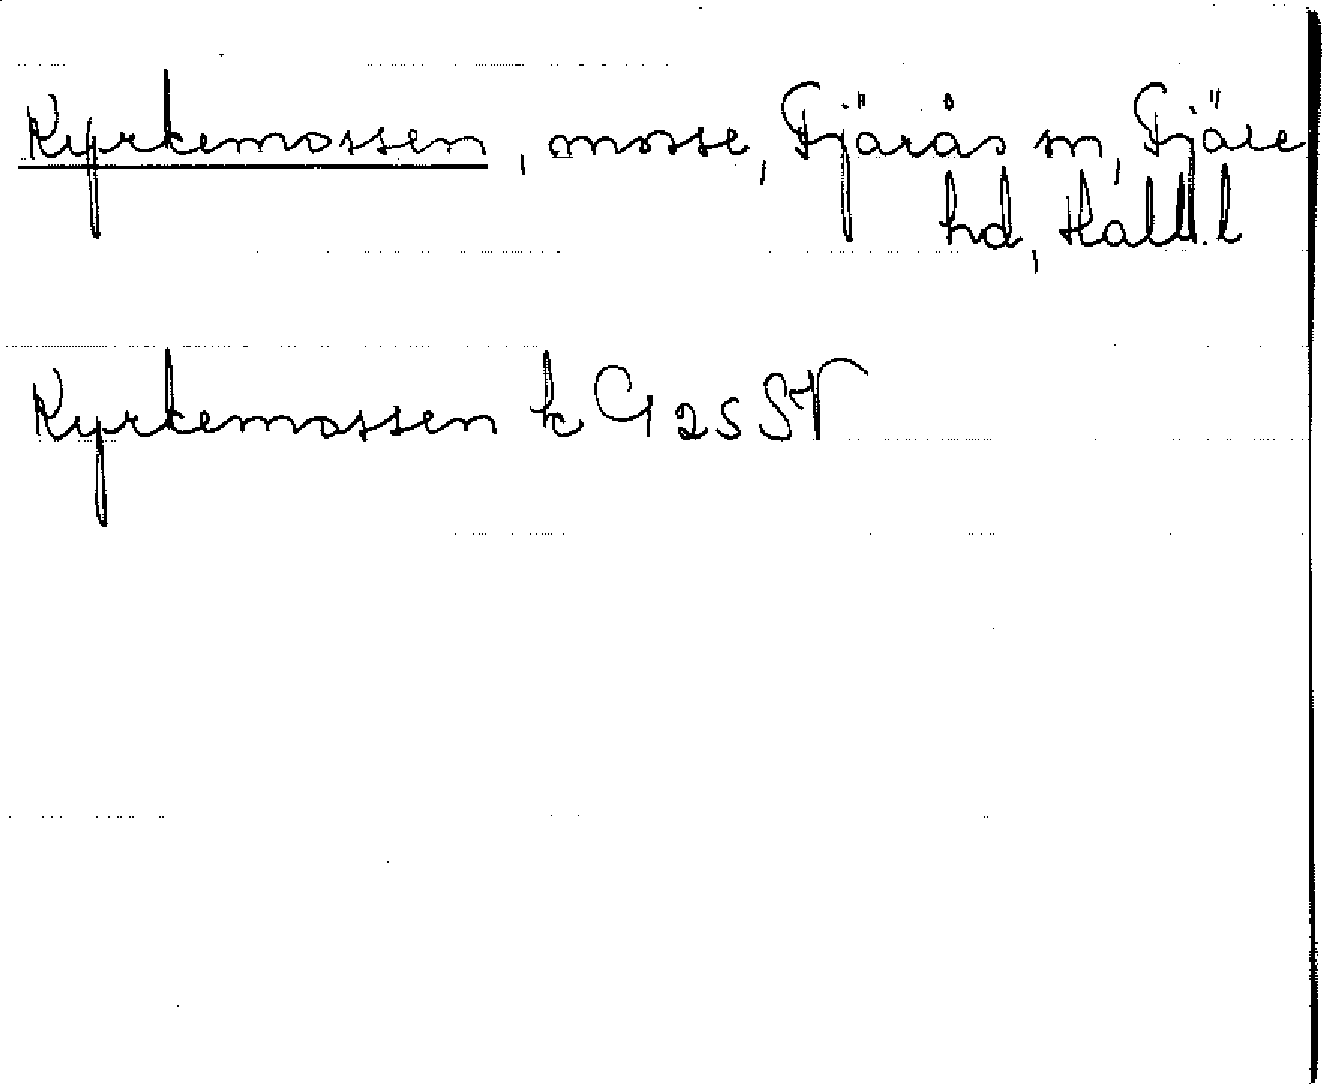 Kyrkemossen, mosse, Fjärås sn, Fjäre
hd, Hall. l
Kyrkemossen k G 25 SV